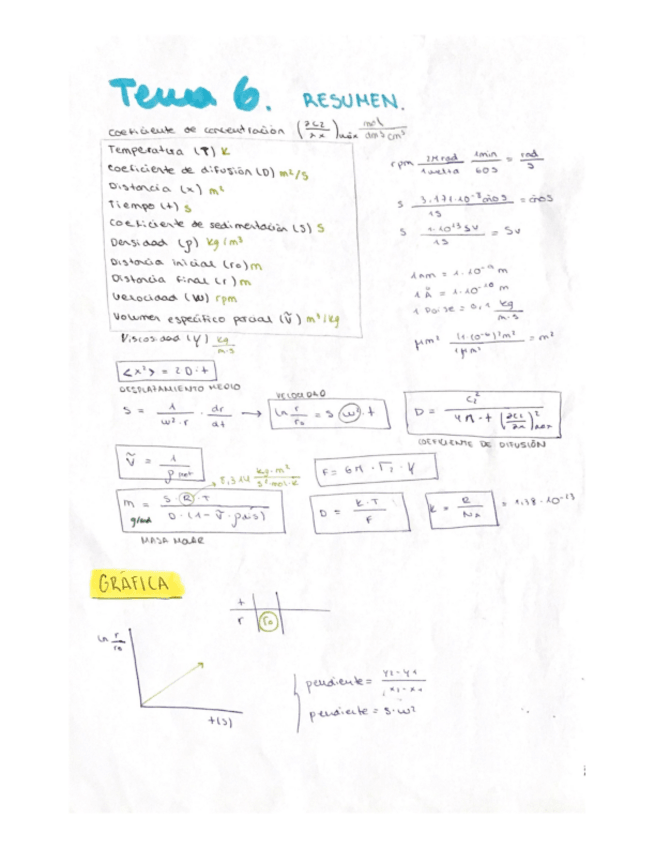 Tema 6. RESUMEN.
Coeficiente de concentración (∂C2/∂x)máx mol/dm³cm³
Temperatura (T) K
Coeficiente de difusión (D) m²/s
Distancia (x) m²
Tiempo (t) s
Coeficiente de sedimentación (S) s
Densidad (ρ) kg/m³
Distancia inicial (r0) m
Distancia final (r) m
Velocidad (W) rpm
Volumen específico parcial (Ṽ) m³/kg
Viscosidad (γ) kg/m·s
rpm 2π rad/1 vuelta 1min/60s = rad/s
1·10⁻¹³ Sv/1s = Sv
1nm = 1·10⁻⁹ m
1 Å = 1·10⁻¹⁰ m
1 Poise = 0,1 kg/m·s
μm² (1·10⁻⁶)²m²/1μm² = m²
<x²> = 2D·t
DESPLAZAMIENTO MEDIO
S = 1/w²·r · dr/dt → ln r/r0 = s w²·t
VELOCIDAD
D = Ci²/4π·t (∂C1/∂x)²máx
COEFICIENTE DE DIFUSIÓN
Ṽ = 1/ρ
F = 6π·ri·γ
8,314 kg·m²/s²·mol·K
m = S·R·T/D·(1-Ṽ·ρdis)
g/mol
MASA MOLAR
D = K·T/F
K = R/NA = 1,38·10⁻²³
GRÁFICA
t
r r0
ln r/r0
t(s)
pendiente = y2-y1/x2-x1
pendiente = s·w²